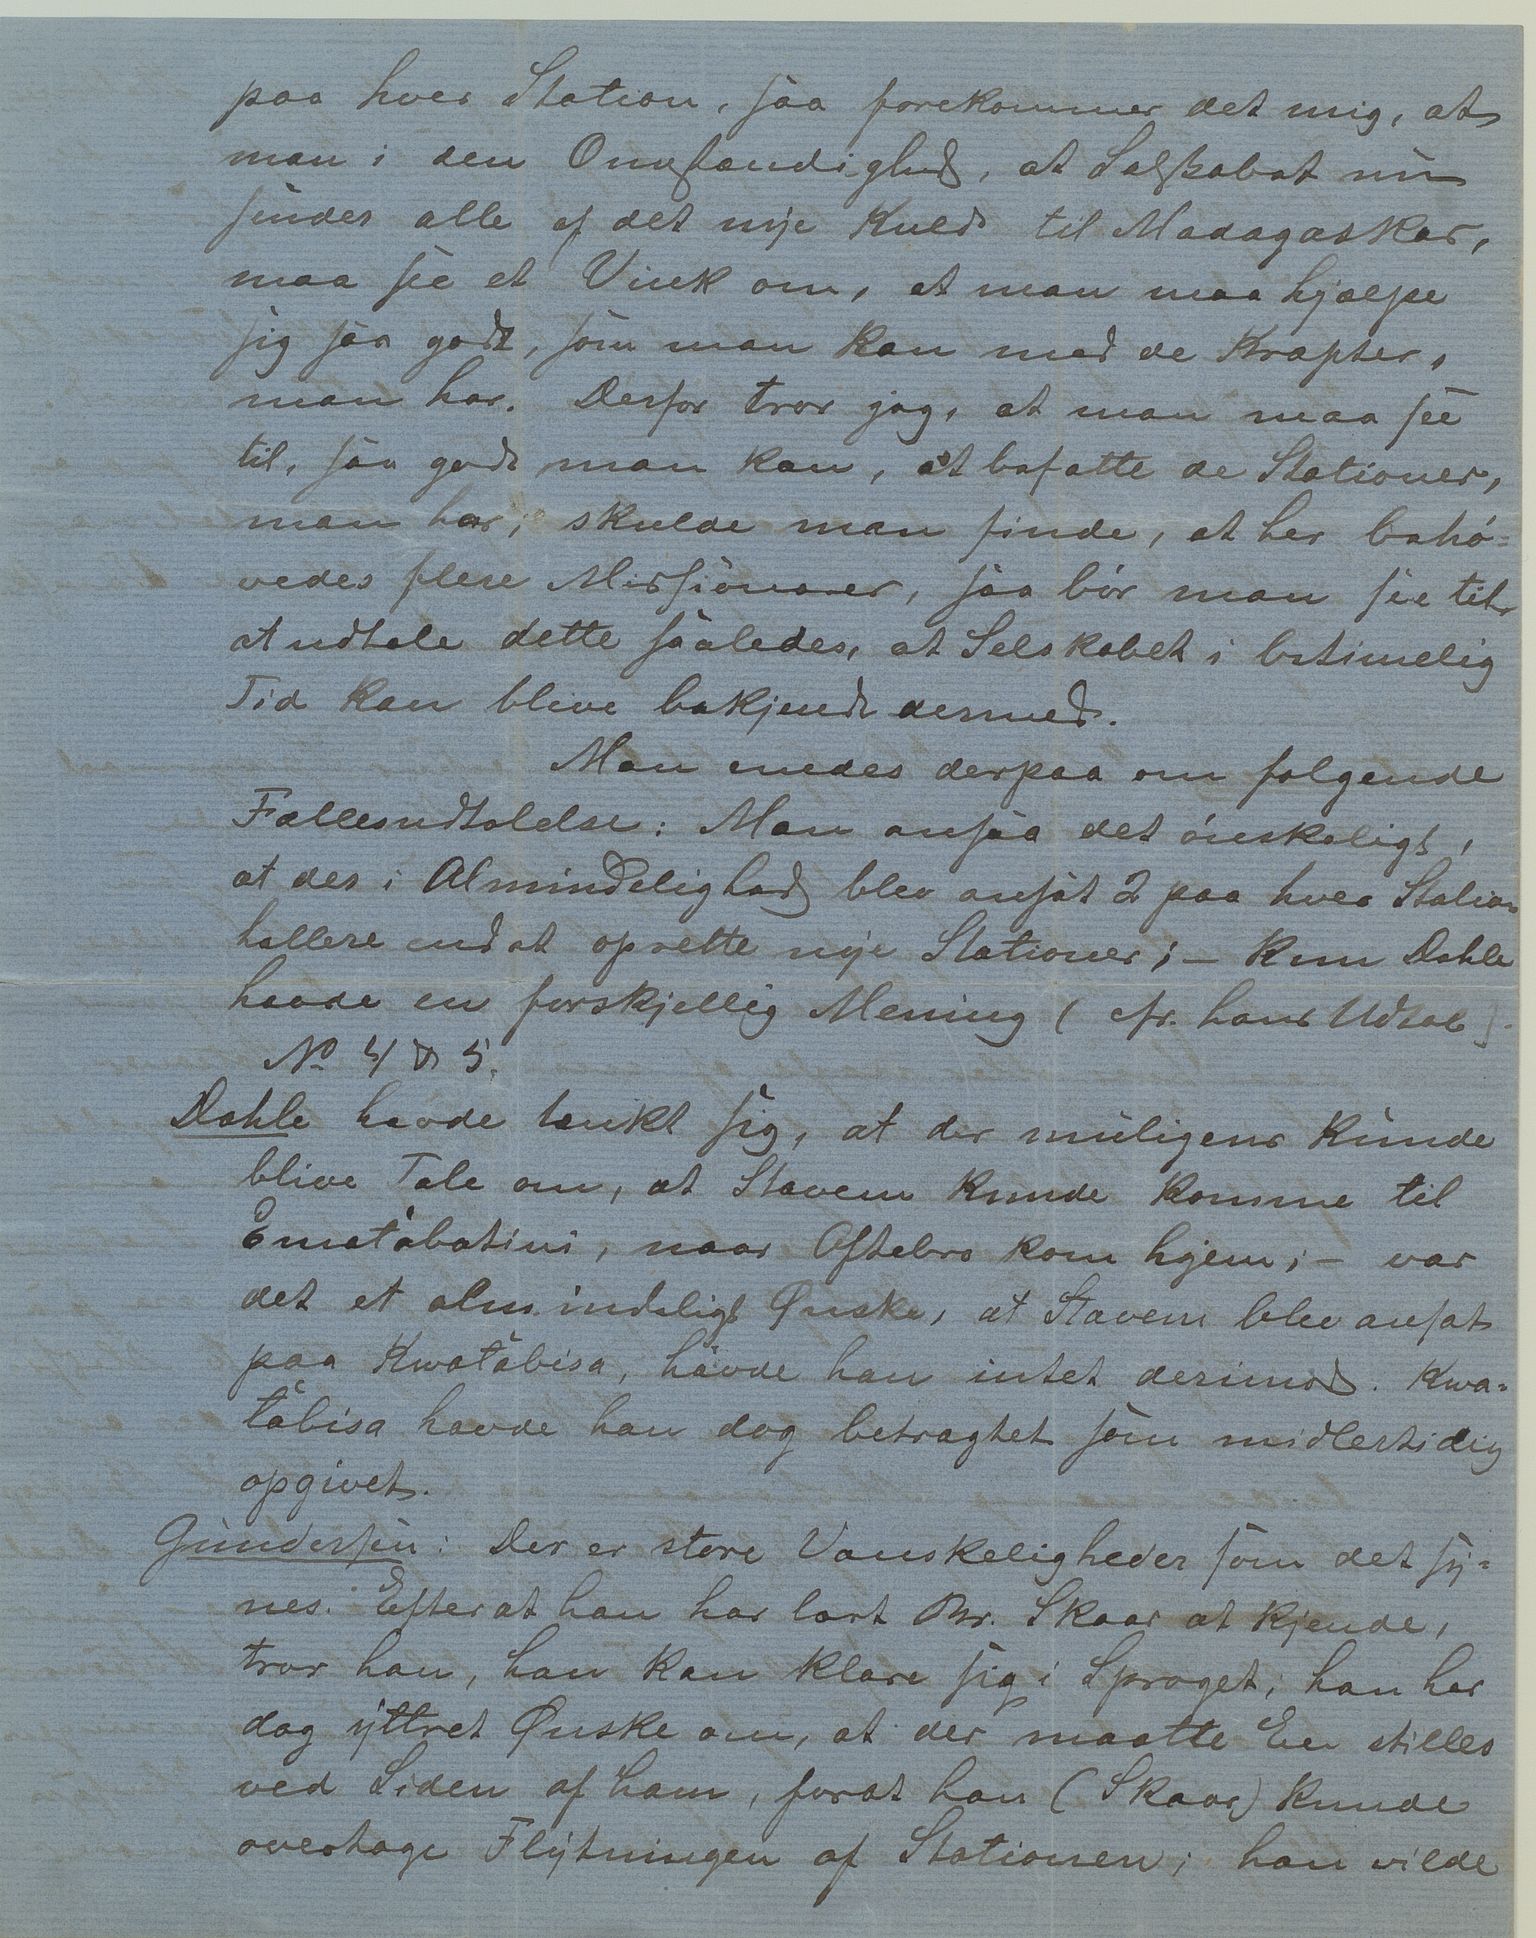 paa hver Station, saa forekommer det mig, at
man i den Omstændighed, at Selskabet nu
sender alle af det nye Kuld til Madagaskar,
maa see et Vink om, at man maa hjælpe
sig saa godt, som man kan med de Kræfter,
man har. Derfor tror jeg, at man maa see
til, saa godt man kan, at besætte de Stationer,
man har; skulde man finde, at her behö-
vedes flere Missionærer, saa bör man see til
at udtale dette saaledes, at Selskabet i betimelig
Tid kan blive bekjendt dermed.
Man enedes derpaa om følgende
Fællesudtalelse: Man ansaa det önskeligt,
at der i Almindelighed blev ansat 2 paa hver Station
hellere end at oprette nye Stationer; - kun Dahle
havde en forskjellig Mening (cfr. hans Udtal).
No 4 & 5.
Dahle havde tænkt sig, at der muligens kunde
blive Tale om, at Stavem kunde komme til
Ematabatini, naar Oftebro kom hjem; - var
det et almindeligt Ønske, at Stavem blev ansat
paa Kwatabisa, havde han intet derimod. Kwa-
tabisa havde han dog betragtet som midlertidig
opgivet.
Gundersen: Der er store Vanskeligheder som det sy-
nes. Efterat han har lært Br. Skaar at kjende,
tror han, han kan klare sig i Sproget; han har
dog yttret Ønske om, at der maatte En stilles
ved Siden af ham, forat han (Skaar) kunde
overtage Flytningen af Stationen; han vilde